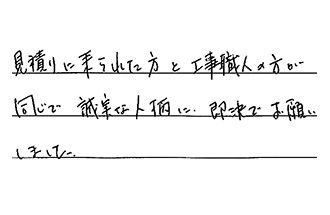 見積りに来られた方と工事職人の方が
同じで誠実な人柄に、即決でお願い
しました。